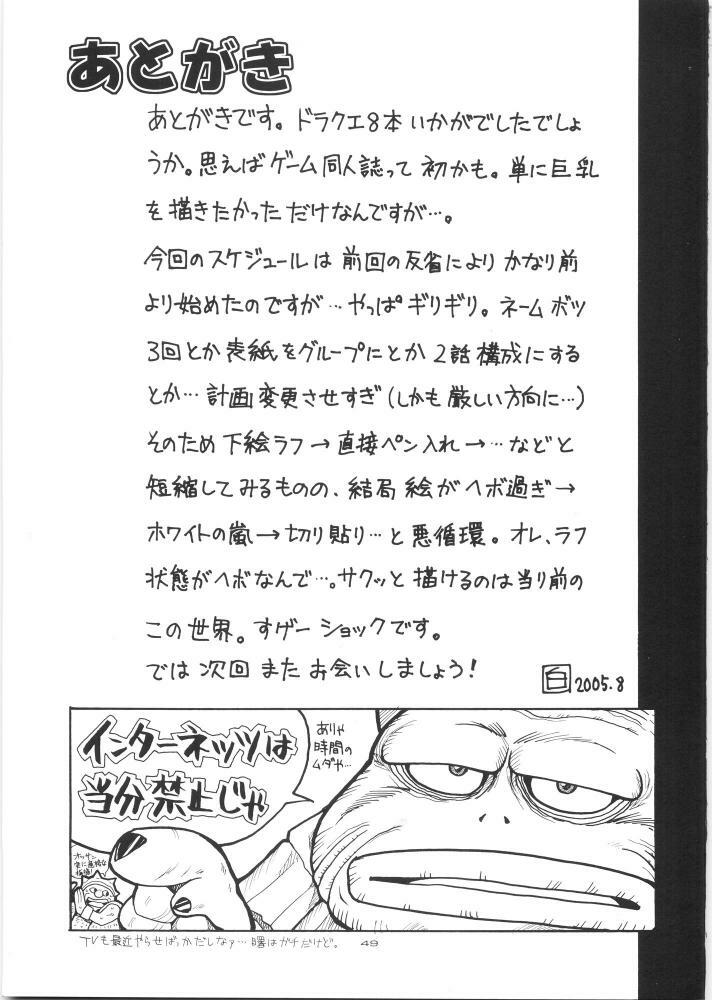 あとがき
あとがきです。ドラクエ8本いかがでしたでしょ
うか。思えばゲーム同人誌って初かも。単に巨乳
を描きたかっただけなんですが…。
今回のスケジュールは前回の反省によりかなり前
より始めたのですが…やっぱギリギリ。ネームボツ
3回とか表紙をグループにとか2話構成にする
とか…計画変更させすぎ(しかも厳しい方向に…)
そのため下絵ラフ→直接ペン入れ→…などと
短縮してみるものの、結局絵がヘボ過ぎ→
ホワイトの嵐→切り貼り…と悪循環。オレ、ラフ
状態がヘボなんで…。サクッと描けるのは当り前の
この世界。すげーショックです。
では次回またお会いしましょう!
白 2005.8
インターネッツは
当分禁止じゃ
ありゃ
時間の
ムダや…
オッサン
TVも最近やらせばっかだしなァ…曙はガチだけど。
49